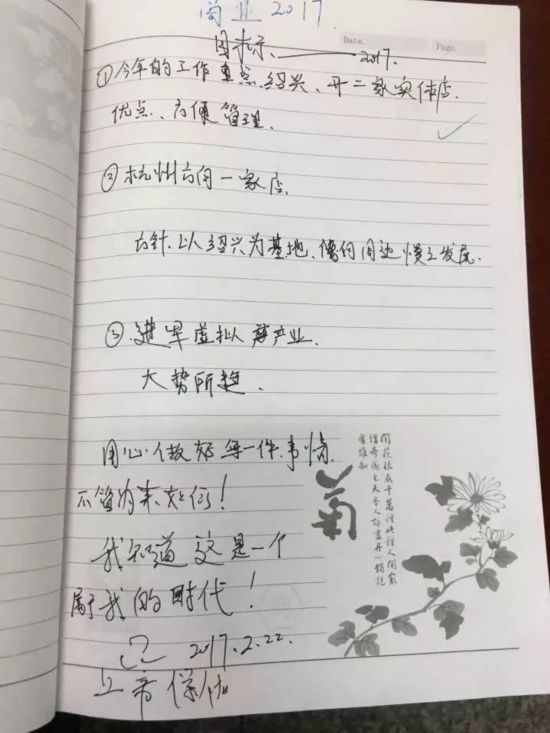 商业 2017
目标、——2017.
Date. Page.
①今年的工作重点.绍兴、开二家实体店.
优点、方便管理.
②杭州方向一家店.
方针.以绍兴为基地、像向周边慢慢发展.
③.进军虚拟产业.
大势所趋.
用心做好每一件事情.
不管为来如何!
我知道这是一个
属于我的时代!
2017.2.22.
上帝保佑
菊